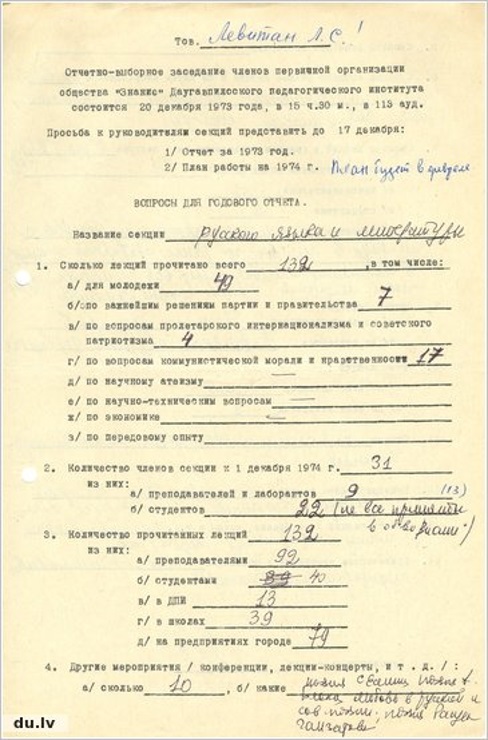 Тов. Левитан Л.С!
Отчетно-выборное заседание членов первичной организации
общества "Знание" Даугавпилсского педагогического института
состоится 20 декабря 1973 года, в 15 ч.30 м., в 113 ауд.
Просьба к руководителям секций представить до 17 декабря:
1/ Отчет за 1973 год.
2/ План работы на 1974 г. План будет в феврале
ВОПРОСЫ ДЛЯ ГОДОВОГО ОТЧЕТА.
Название секции русского языка и литературы
1. Сколько лекций прочитано всего 132, в том числе:
а/ для молодежи 49
б/ по важнейшим решениям партии и правительства 7
в/ по вопросам пролетарского интернационализма и советского
патриотизма 4
г/ по вопросам коммунистической морали и нравственности 17
д/ по научному атеизму —
е/ по научно-техническим вопросам —
ж/ по экономике —
з/ по передовому опыту
2. Количество членов секции к 1 декабря 1974 г. 31
из них:
а/ преподавателей и лаборантов 9 (13)
б/ студентов 22 (не все приняты
в об-во "Знание")
3. Количество прочитанных лекций 132
из них:
а/ преподавателями 92
б/ студентами 39 40
в/ в ДПИ 13
г/ в школах 39
д/ на предприятиях городе 79
4. Другие мероприятия / конференции, лекции-концерты, и т. д./:
а/ сколько 10, б/ какие
Блока, любовь в русской и
сов. поэзии, поэзия Расула
Гамзатова
du.lv